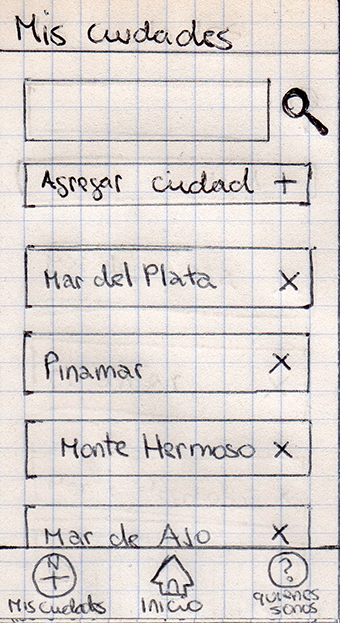 Mis ciudades
Agregar ciudad +
Mar del Plata X
Pinamar X
Monte Hermoso X
Mar de Ajo X
N
Mis ciudades
INICIO
?
quienes
somos